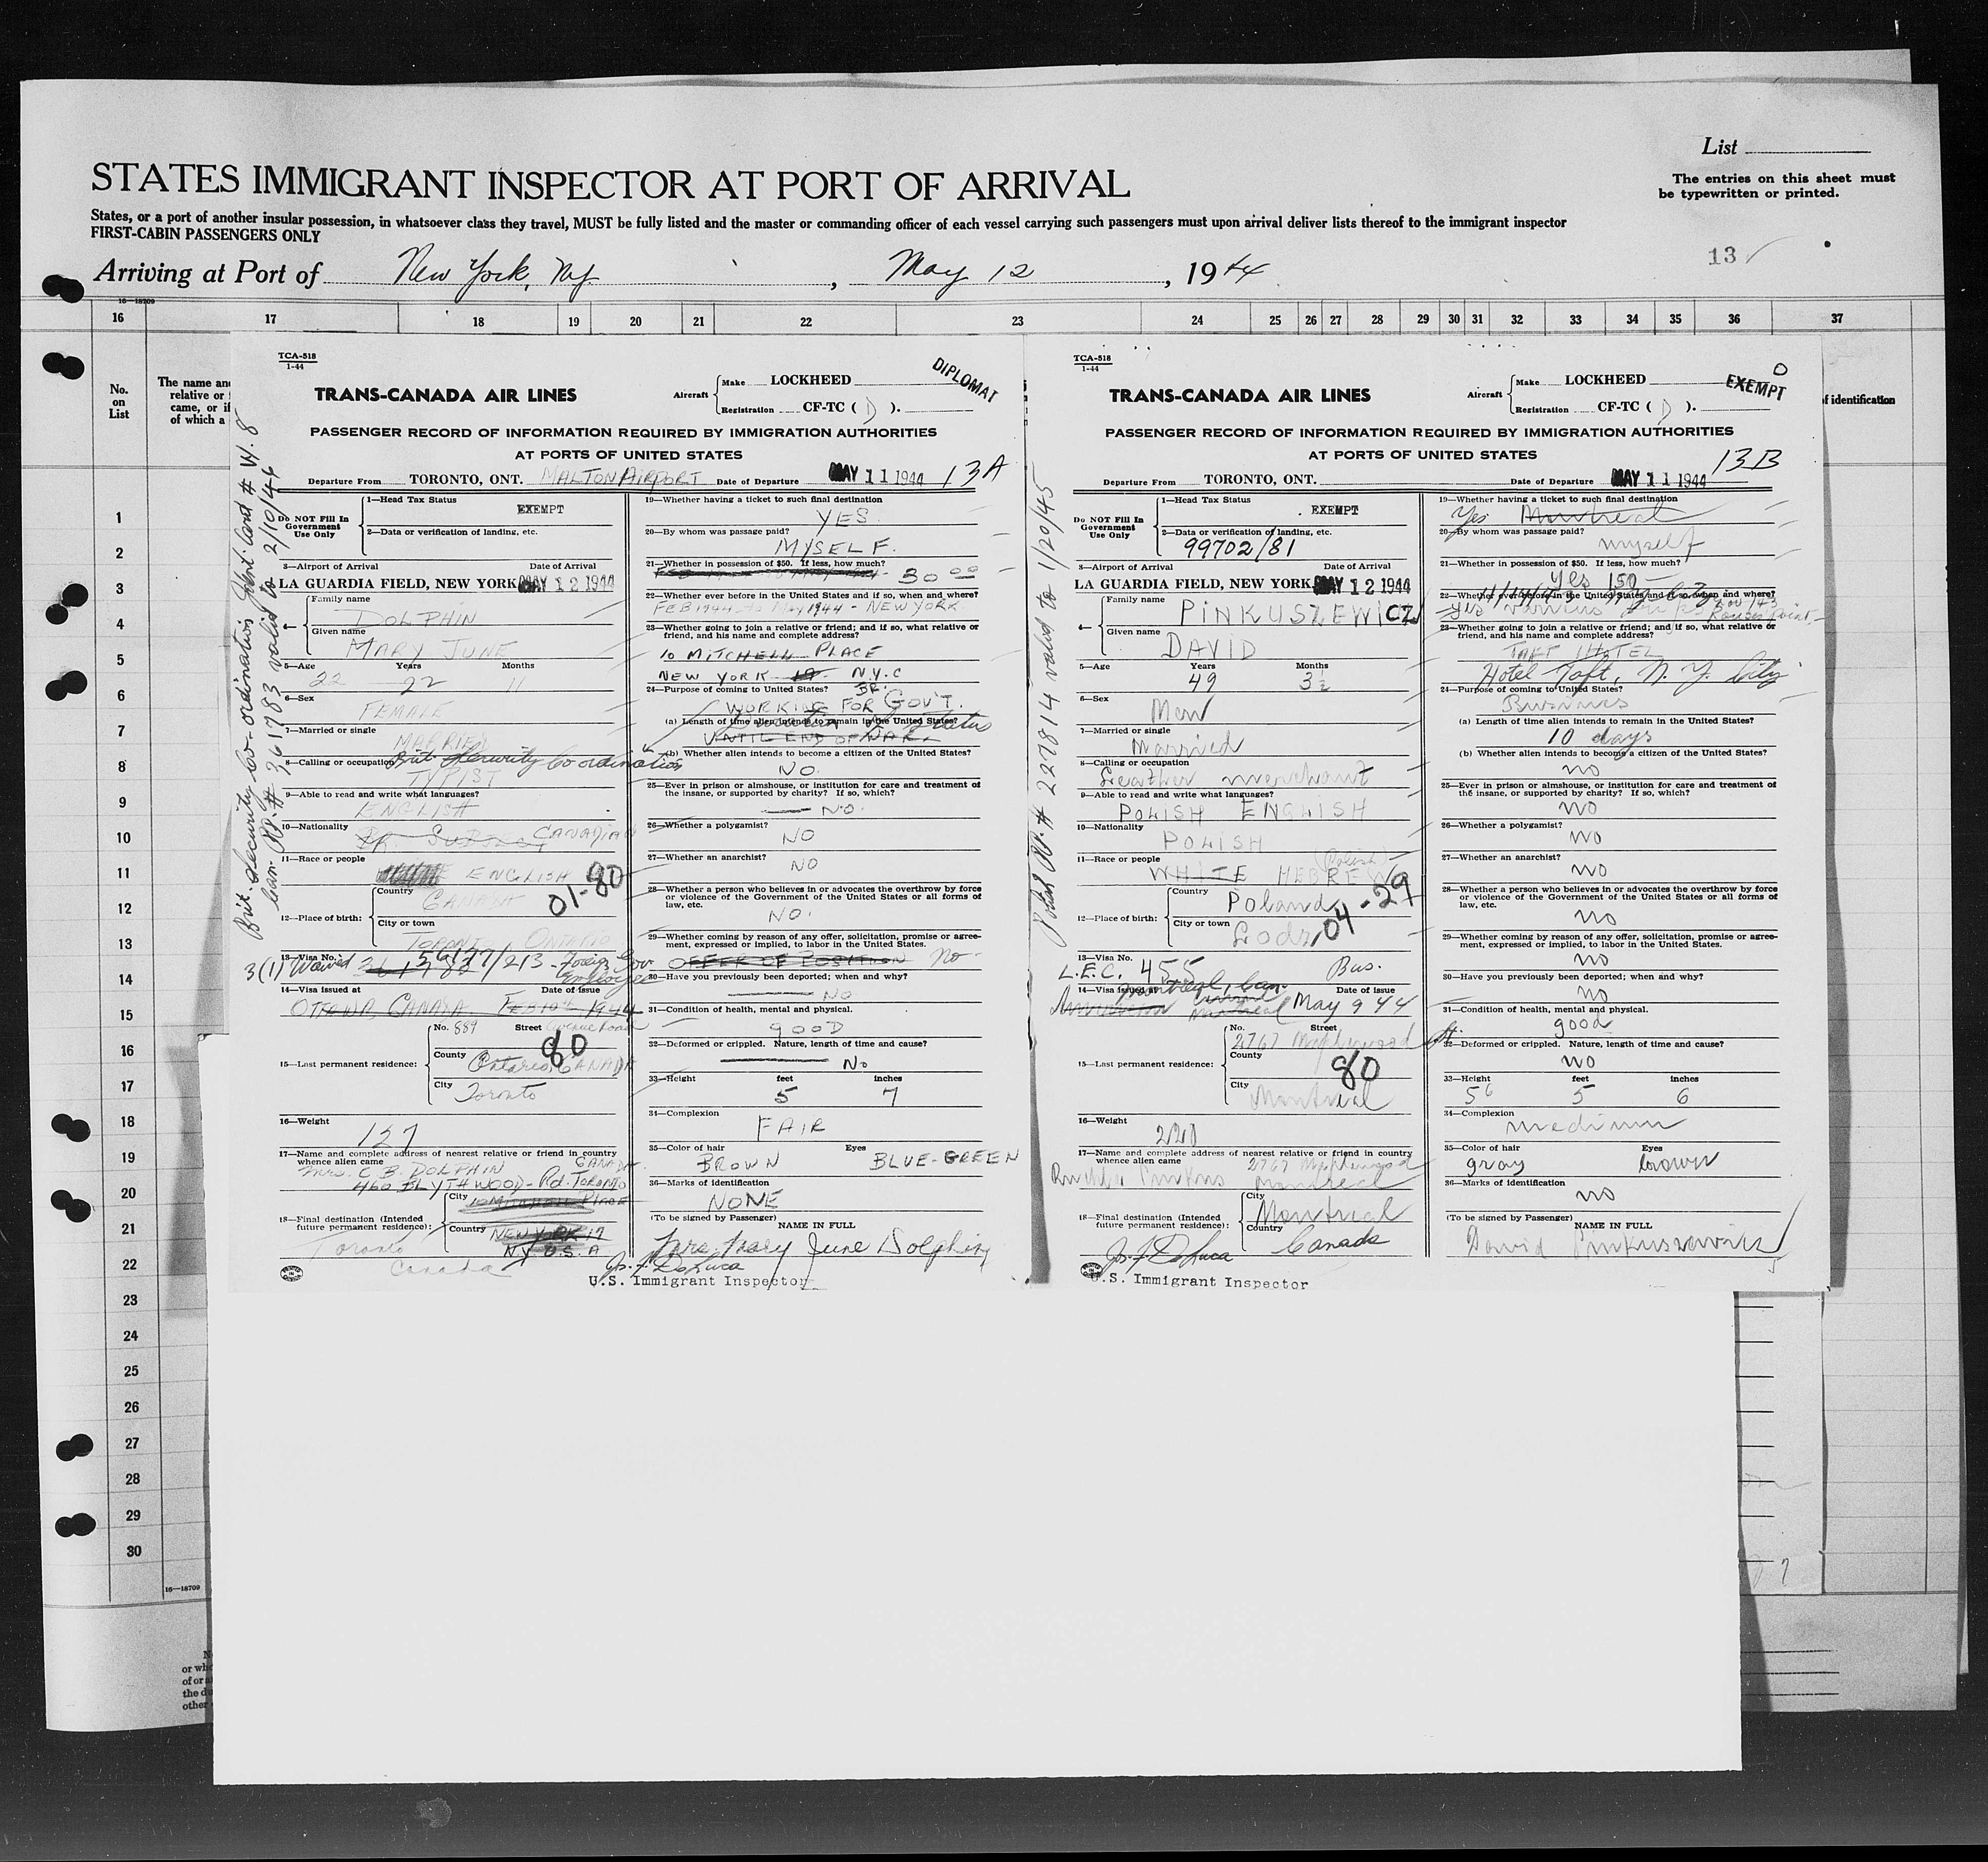 List
The entries on this sheet must
be typewritten or printed.
STATES IMMIGRANT INSPECTOR AT PORT OF ARRIVAL
States, or a port of another insular possession, in whatsoever class they travel, MUST be fully listed and the master or commanding officer of each vessel carrying such passengers must upon arrival deliver lists thereof to the immigrant inspector
FIRST-CABIN PASSENGERS ONLY
13
Arriving at Port of New York, Ny , May 12 , 1944
16—18709
16 17 18 19 20 21 22 23 24 25 26 27 28 29 30 31 32 33 34 35 36 37
No.
on
List
The name and
relative or
came, or if
of which a
of identification
1
2
3
4
5
6
7
8
9
10
11
12
13
14
15
16
17
18
19
20
21
22
23
24
25
26
27
28
29
30
16—18709
or who
of or a
the du
other
Brit. Security Co-ordination Ident. Card # W. 8
Can. PP. # 361783 valid to 2/10/46
TCA-518
1-44
DIPLOMAT
TRANS-CANADA AIR LINES
Aircraft Make LOCKHEED
Registration CF-TC ( D ).
PASSENGER RECORD OF INFORMATION REQUIRED BY IMMIGRATION AUTHORITIES
AT PORTS OF UNITED STATES
13A
Departure From TORONTO, ONT. MALTON AIRPORT Date of Departure MAY 11 1944
Do NOT Fill In
Government
Use Only
1—Head Tax Status
EXEMPT
2—Data or verification of landing, etc.
3—Airport of Arrival Date of Arrival
LA GUARDIA FIELD, NEW YORK MAY 12 1944
4— Family name
DOLPHIN
Given name
MARY JUNE
5—Age Years Months
22 22 11
6—Sex
FEMALE
7—Married or single
MARRIED
8—Calling or occupation Brit. Security Co ordination
TYPIST
9—Able to read and write what languages?
ENGLISH
10—Nationality
CANADIAN
11—Race or people
ENGLISH
01-80
12—Place of birth: Country
CANADA
City or town
TORONTO ONTARIO
13—Visa No.
3(1) Waived
14—Visa issued at Date of issue
OTTAWA, CANADA FEB 10th 1944
15—Last permanent residence: No. 889 Street Avenue Road
80
County
Ontario, CANADA
City
Toronto
16—Weight
127
17—Name and complete address of nearest relative or friend in country
whence alien came CANADA
Mrs. C. B. DOLPHIN
460 BLYTHWOOD - Rd. TORONTO
18—Final destination (Intended
future permanent residence): City
10 MITCHELL PLACE
Country
NEW YORK 17
N.Y. U.S.A
Toronto
Canada
19—Whether having a ticket to such final destination
YES
20—By whom was passage paid?
MYSELF.
21—Whether in possession of $50. If less, how much?
30 00
22—Whether ever before in the United States and if so, when and where?
FEB 1944 to May 1944 - NEW YORK
23—Whether going to join a relative or friend; and if so, what relative or
friend, and his name and complete address?
10 MITCHELL PLACE
NEW YORK 17 N.Y.C
24—Purpose of coming to United States? BR.
WORKING FOR GOV'T.
(a) Length of time alien intends to remain in the United States?
Duration of Status
UNTIL END OF WAR.
(b) Whether alien intends to become a citizen of the United States?
NO.
25—Ever in prison or almshouse, or institution for care and treatment of
the insane, or supported by charity? If so, which?
NO.
26—Whether a polygamist?
NO
27—Whether an anarchist?
NO
28—Whether a person who believes in or advocates the overthrow by force
or violence of the Government of the United States or all forms of
law, etc.
NO.
29—Whether coming by reason of any offer, solicitation, promise or agree-
ment, expressed or implied, to labor in the United States.
OFFER OF POSITION No-
30—Have you previously been deported; when and why?
NO
31—Condition of health, mental and physical.
GOOD
32—Deformed or crippled. Nature, length of time and cause?
No
33—Height feet inches
5 7
34—Complexion
FAIR
35—Color of hair Eyes
BROWN BLUE-GREEN
36—Marks of identification
NONE
(To be signed by Passenger) NAME IN FULL
Mrs. Mary June Dolphin
Jos. F. DeLuca
U.S. Immigrant Inspector
Polish PP. # 227814 valid to 1/20/45
TCA-518
1-44
EXEMPT
TRANS-CANADA AIR LINES
Aircraft Make LOCKHEED
Registration CF-TC ( D ).
PASSENGER RECORD OF INFORMATION REQUIRED BY IMMIGRATION AUTHORITIES
AT PORTS OF UNITED STATES
13B
Departure From TORONTO, ONT. Date of Departure MAY 11 1944
Do NOT Fill In
Government
Use Only
1—Head Tax Status
EXEMPT
2—Data or verification of landing, etc.
99702/81
3—Airport of Arrival Date of Arrival
LA GUARDIA FIELD, NEW YORK MAY 12 1944
4— Family name
PINKUSZEWICZ
Given name
DAVID
5—Age Years Months
49 3½
6—Sex
Men
7—Married or single
Married
8—Calling or occupation
Leather merchant
9—Able to read and write what languages?
POLISH ENGLISH
10—Nationality
POLISH
11—Race or people (Polish)
WHITE HEBREW
04-29
12—Place of birth: Country
Poland
City or town
Lodz
13—Visa No.
L.E.C. 455 Bus.
14—Visa issued at Date of issue
Montreal, Can. May 9 44
15—Last permanent residence: No. Street
2767 Maplewood
County
80
City
Montreal
16—Weight
220
17—Name and complete address of nearest relative or friend in country
whence alien came 2767 Maplewood
Montreal
18—Final destination (Intended
future permanent residence): City
Montreal
Country
Canada
Jos. F. DeLuca
U.S. Immigrant Inspector
19—Whether having a ticket to such final destination
Yes Montreal
20—By whom was passage paid?
myself
21—Whether in possession of $50. If less, how much?
Yes 150-
22—Whether ever before in the United States and if so, when and where?
yes various trips
23—Whether going to join a relative or friend; and if so, what relative or
friend, and his name and complete address?
TAFT HOTEL
Hotel Taft, N. Y. City
24—Purpose of coming to United States?
Business
(a) Length of time alien intends to remain in United States?
10 days
(b) Whether alien intends to become a citizen of the United States?
no
25—Ever in prison or almshouse, or institution for care and treatment of
the insane, or supported by charity? If so, which?
no
26—Whether a polygamist?
no
27—Whether an anarchist?
no
28—Whether a person who believes in or advocates the overthrow by force
or violence of the Government of the United States or all forms of
law, etc.
no
29—Whether coming by reason of any offer, solicitation, promise or agree-
ment, expressed or implied, to labor in the United States.
no
30—Have you previously been deported; when and why?
no
31—Condition of health, mental and physical.
good
32—Deformed or crippled. Nature, length of time and cause?
no
33—Height feet inches
5 6
34—Complexion
medium
35—Color of hair Eyes
gray brown
36—Marks of identification
no
(To be signed by Passenger) NAME IN FULL